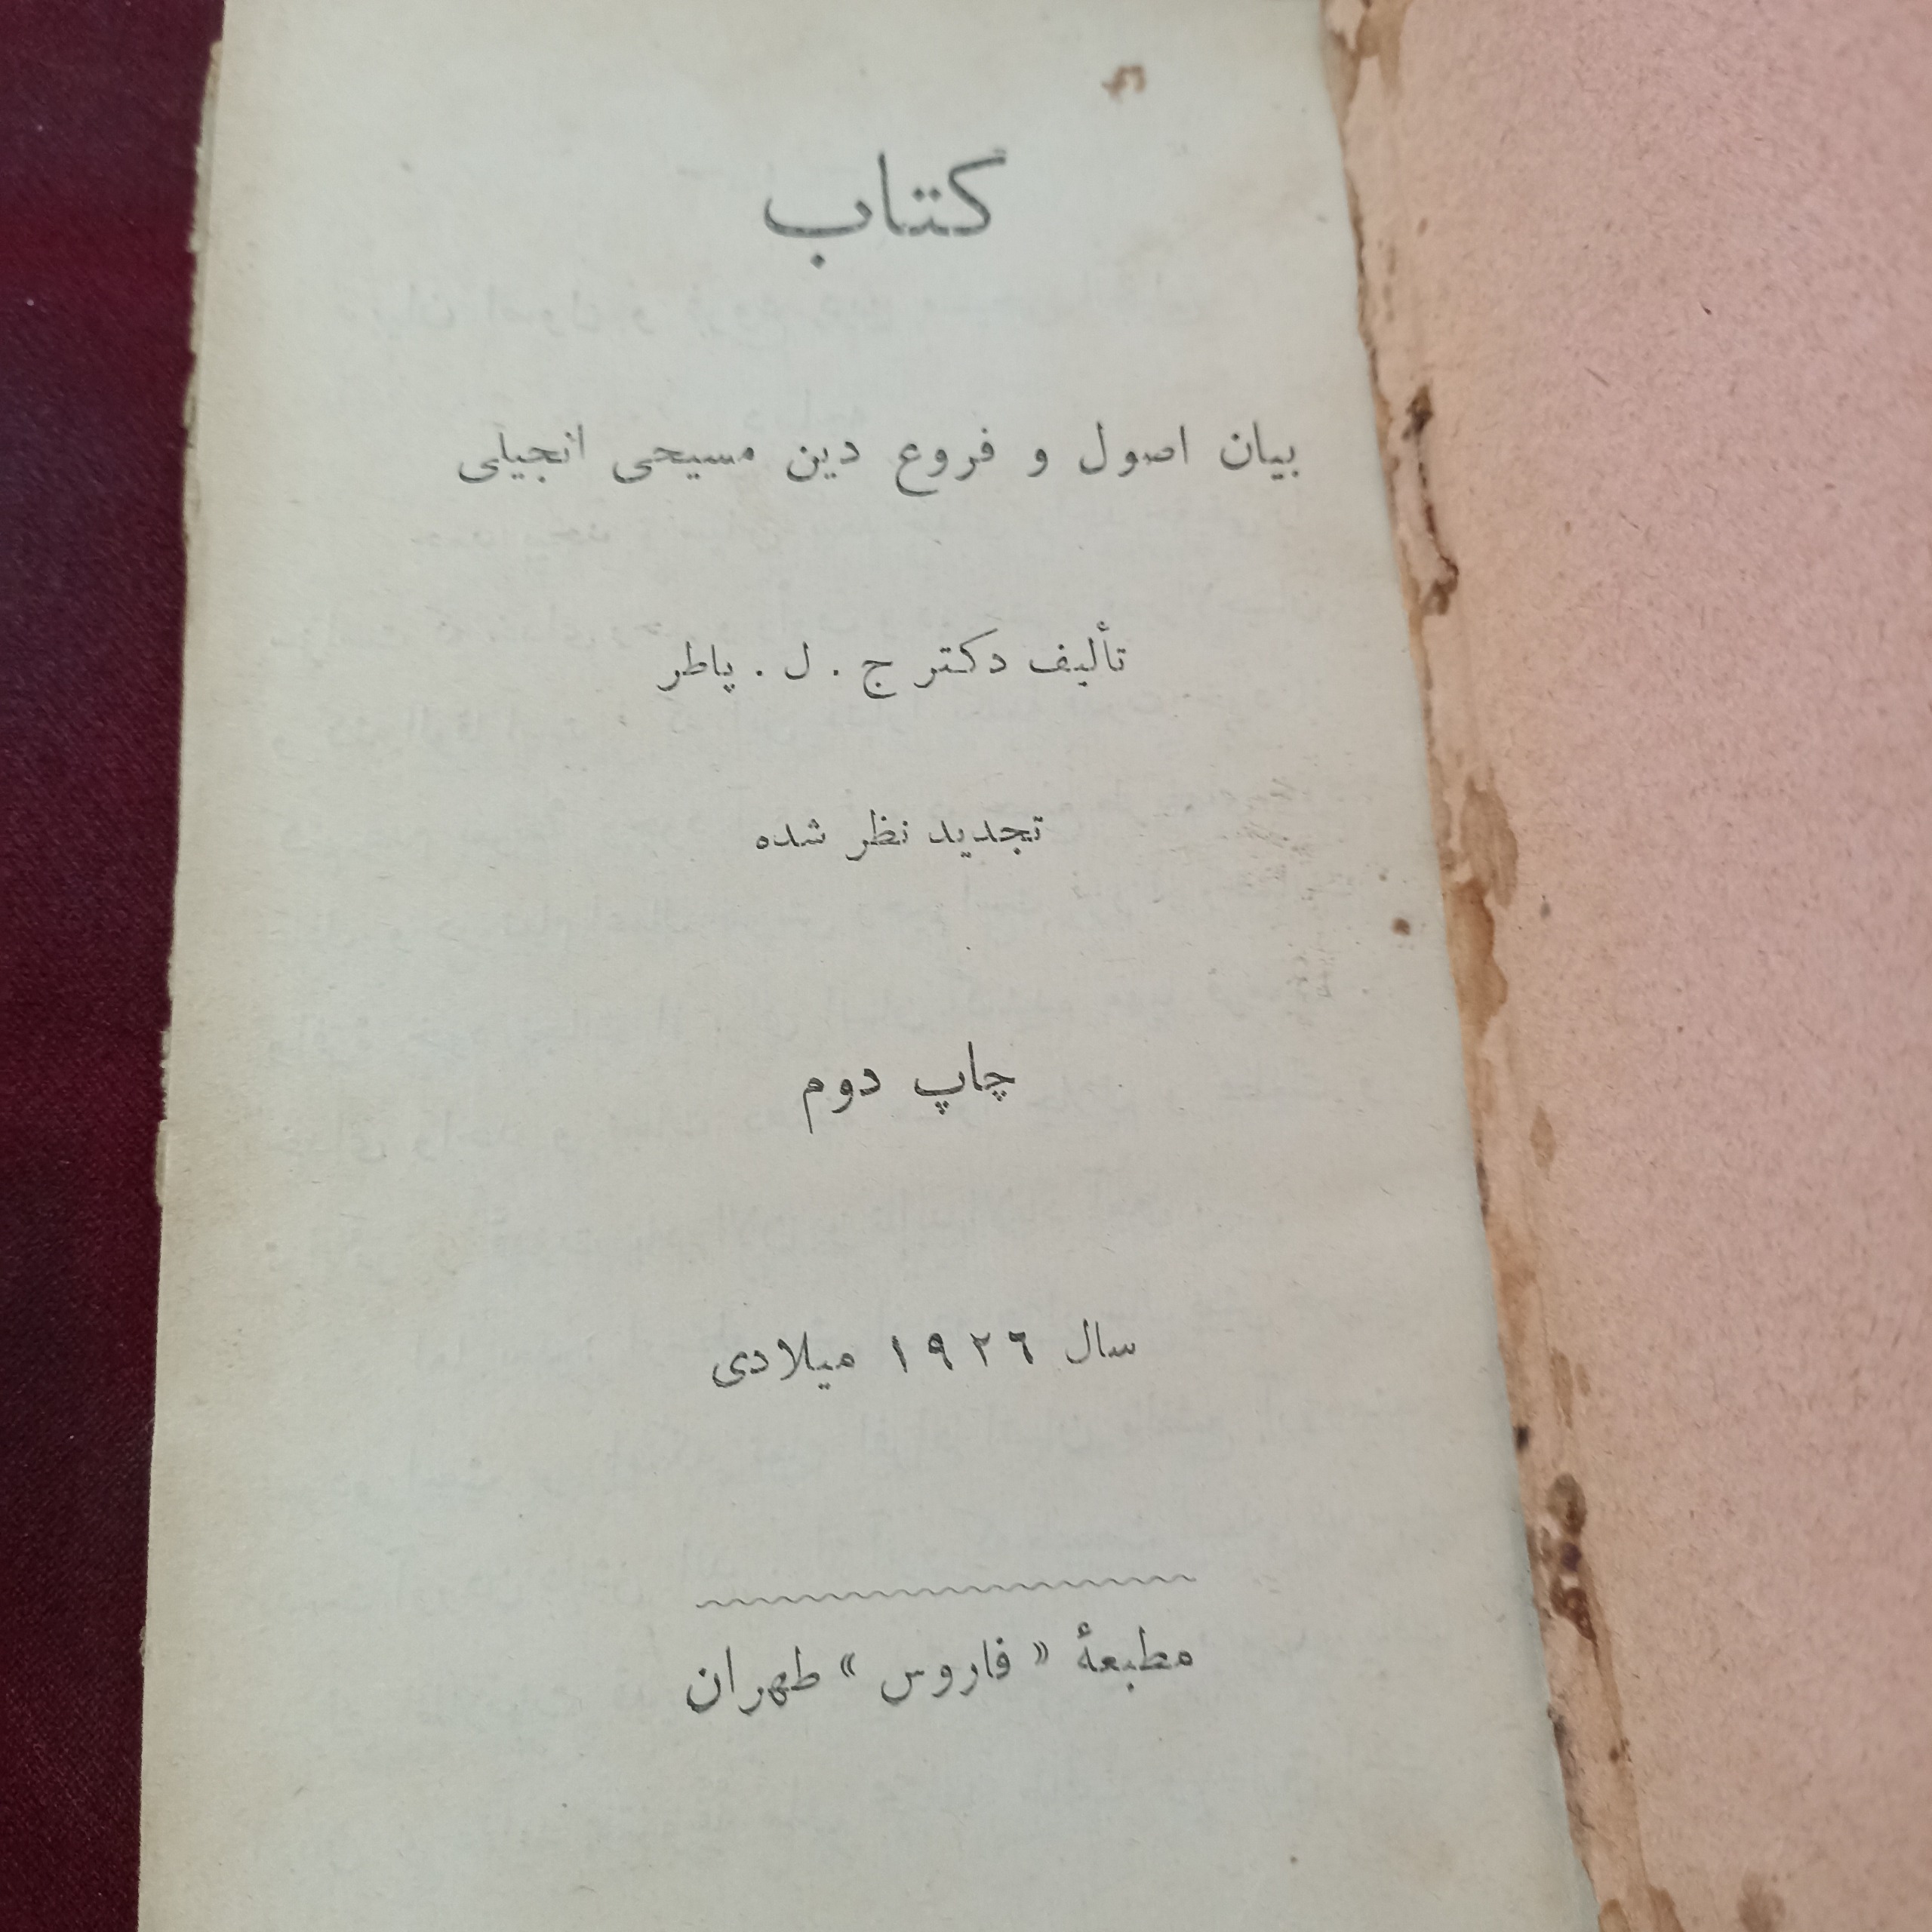 کتاب
بیان اصول و فروع دین مسیحی انجیلی
تألیف دکتر ج . ل . پاطر
تجدید نظر شده
چاپ دوم
سال ۱۹۲٦ میلادی
مطبعهٔ « فاروس » طهران